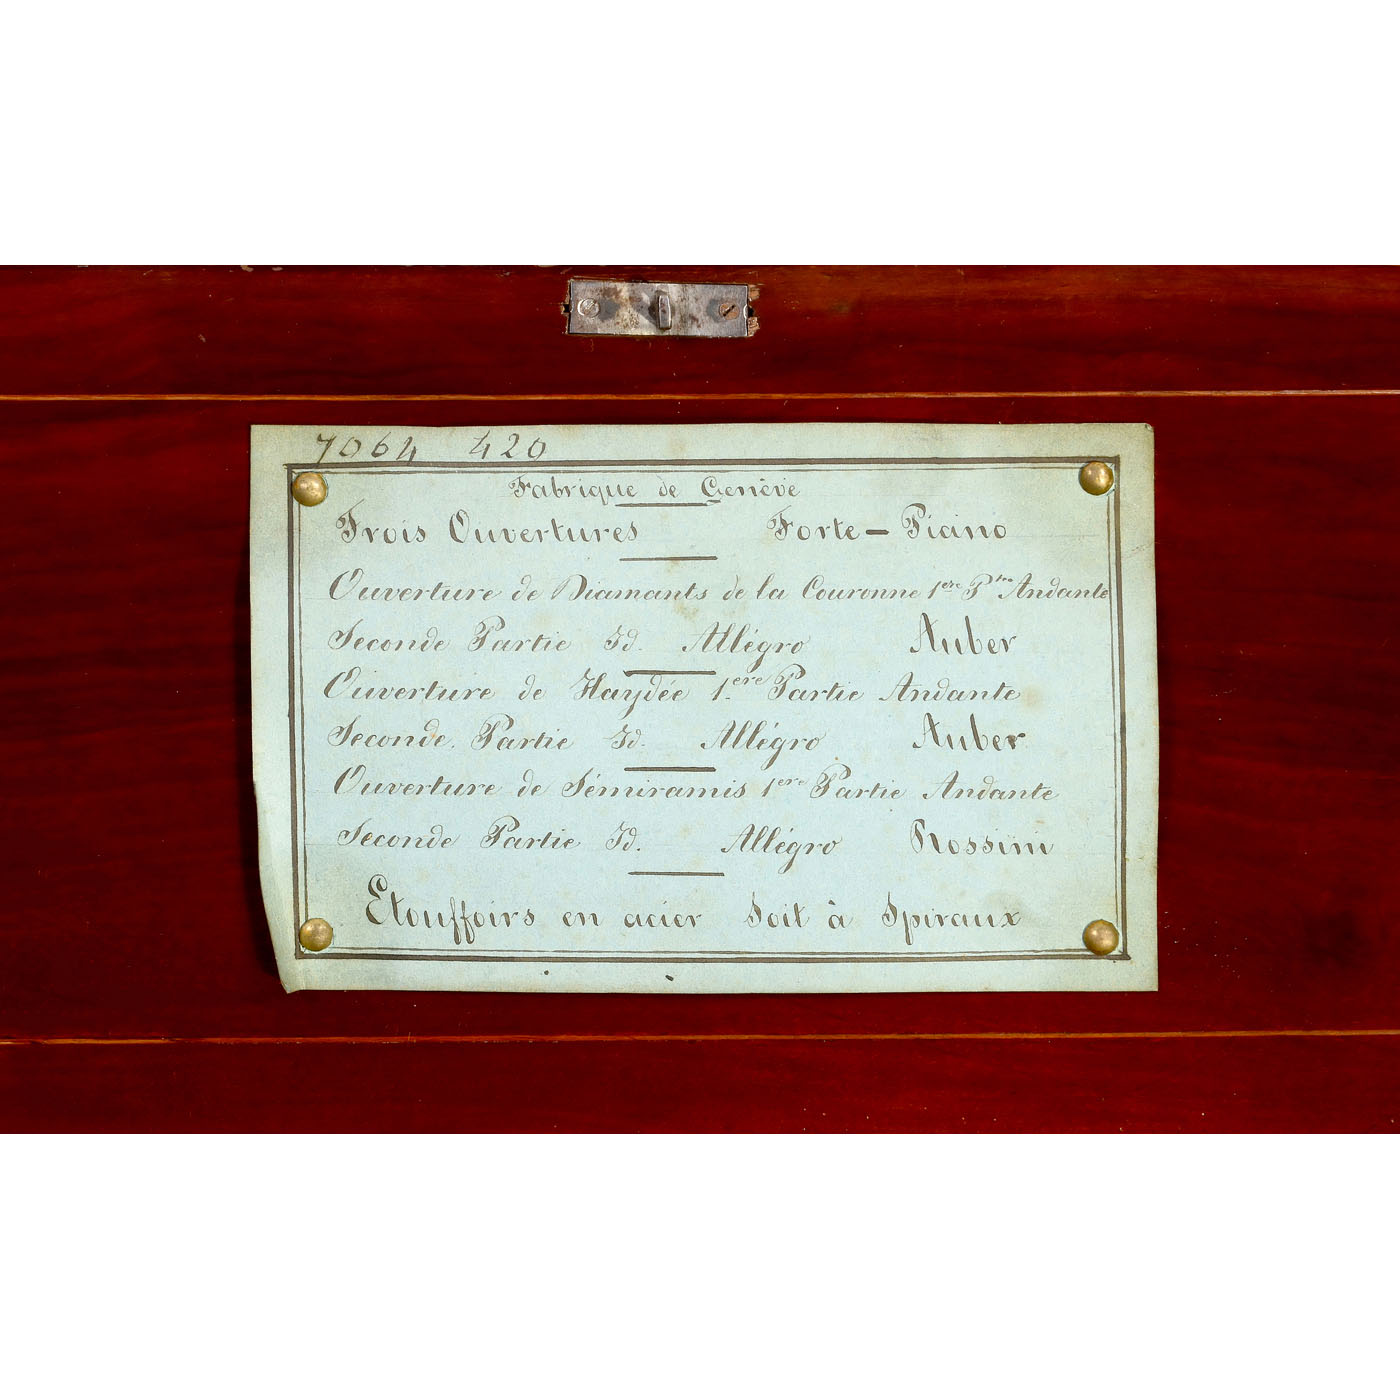 7064 420
Fabrique de Genève
Trois Ouvertures Forte - Piano
Ouverture de Diamants de la Couronne 1ere Ptie Andante
Seconde Partie Id. Allégro Auber
Ouverture de Haydée 1ere Partie Andante
Seconde Partie Id. Allégro Auber
Ouverture de Sémiramis 1ere Partie Andante
Seconde Partie Id. Allégro Rossini
Etouffoirs en acier Soit à Spiraux